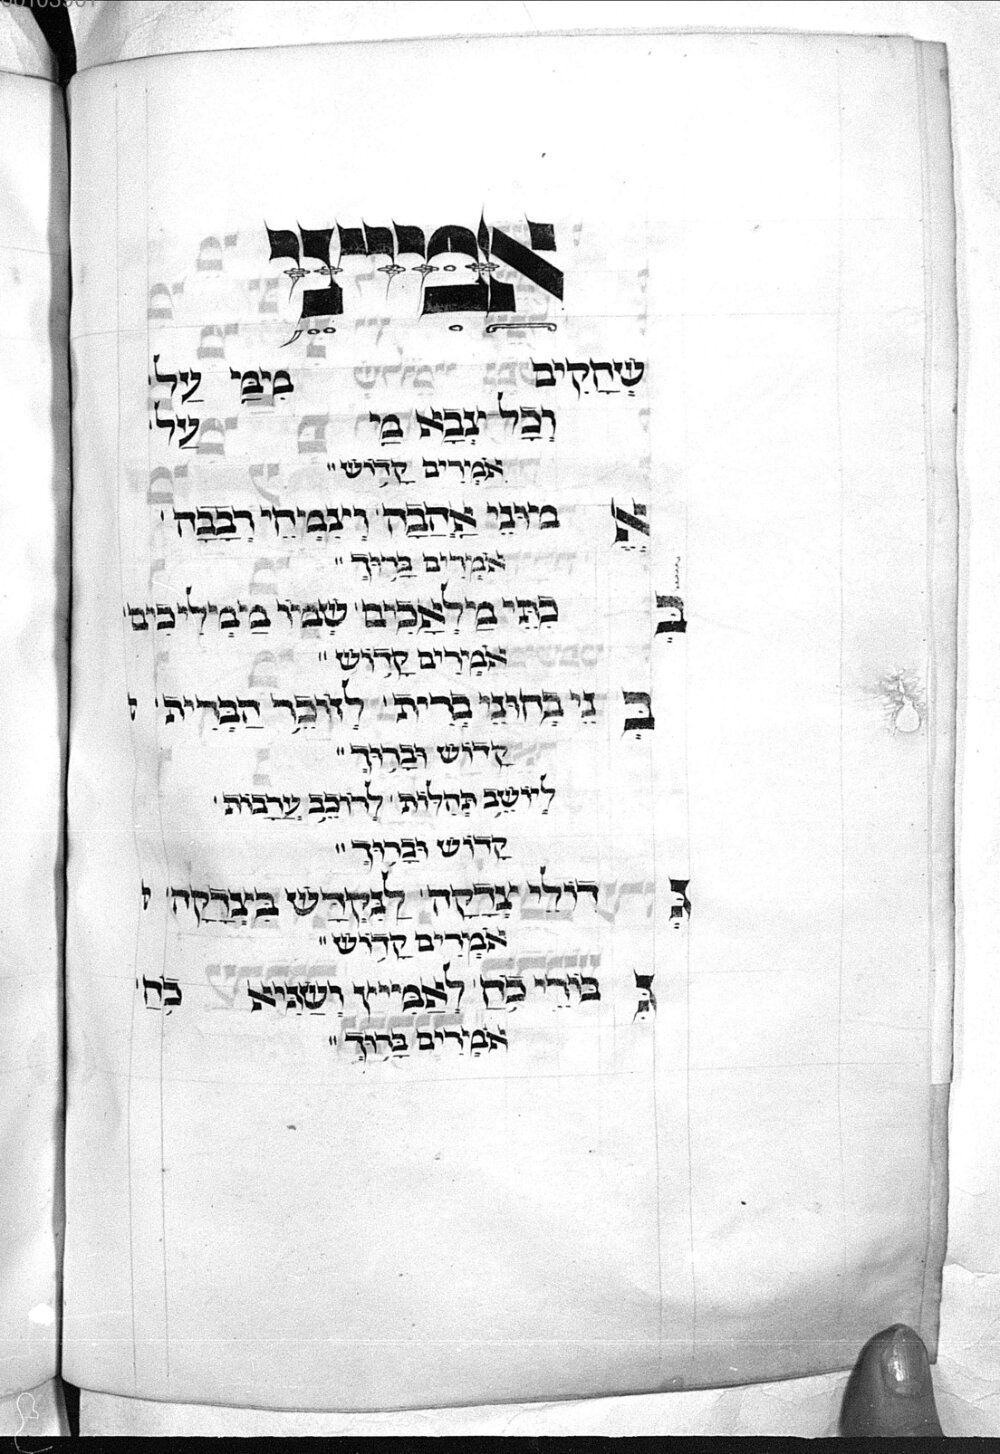 אמיצי
שְׁחָקִים מִמַּ עַל׳
וְכָל צְבָא מַ עַל׳
אֹמְרִים קָדוֹשׁ״
אֱ מוּנֵי אַהֲבָה׳ וְצִמְחֵי רְבָבָה׳
אֹמְרִים בָּרוּךְ״
בְּ כִתֵּי מַלְאָכִים׳ שְׁמוֹ מַמְלִיכִים׳
אֹמְרִים קָדוֹשׁ״
בְּ נֵי בְחוּנֵי בְרִית׳ לְזוֹכֵר הַבְּרִית׳
קָדוֹשׁ וּבָרוּךְ״
לְיוֹשֵׁב תְּהִלּוֹת׳ לְרוֹכֵב עֲרָבוֹת׳
קָדוֹשׁ וּבָרוּךְ״
גְּ דוֹלֵי צְדָקָה׳ לַנִּקְדָּשׁ בִּצְדָקָה׳
אֹמְרִים קָדוֹשׁ״
גִּ בּוֹרֵי כֹחַ׳ לְאַמִּיץ וְשַׂגִּיא כֹחַ׳
אֹמְרִים בָּרוּךְ״